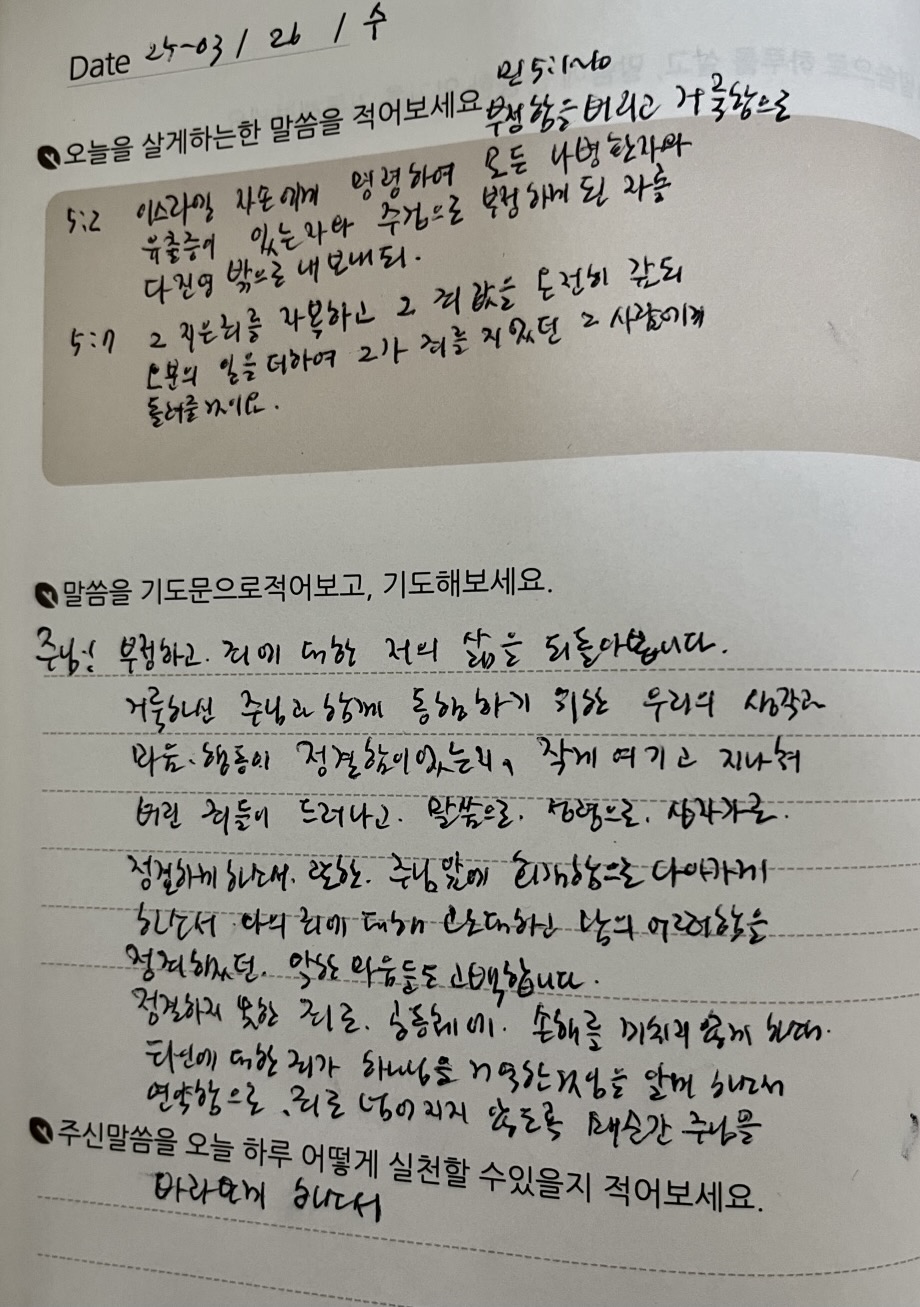 Date 25-03 / 26 / 수
민 5:1~10
오늘을 살게하는한 말씀을 적어보세요.
부정함을 버리고 거룩함으로
5:2 이스라엘 자손에게 명령하여 모든 나병환자와
유출증이 있는자와 주검으로 부정하게 된 자를
다 진영 밖으로 내보내되.
5:7 그 지은죄를 자복하고 그 죄 값을 온전히 갚되
오분의 일을 더하여 그가 죄를 지었던 그 사람에게
돌려줄것이요.
말씀을 기도문으로적어보고, 기도해보세요.
주님! 부정하고. 죄에 대한 저의 삶을 되돌아봅니다.
거룩하신 주님과 함께 동행하기 위한 우리의 생각과
마음. 행동이 정결함이 있는지, 작게 여기고 지나쳐
버린 죄들이 드러나고. 말씀으로. 성령으로. 십자가로.
정결하게 하소서. 또한. 주님앞에 회개함으로 다아가게
하소서 나의 죄에 대해 관대하고 남의 어려함을
정죄하였던. 악한 마음들도 고백합니다.
정결하지 못한 죄로. 공동체에. 손해를 미치지 않게 하며.
타인에 대한 죄가 하나님을 거역한것임을 알게 하소서
연약함으로, 죄로 넘어지지 않도록 매순간 주님을
주신말씀을 오늘 하루 어떻게 실천할 수있을지 적어보세요.
바라보게 하소서